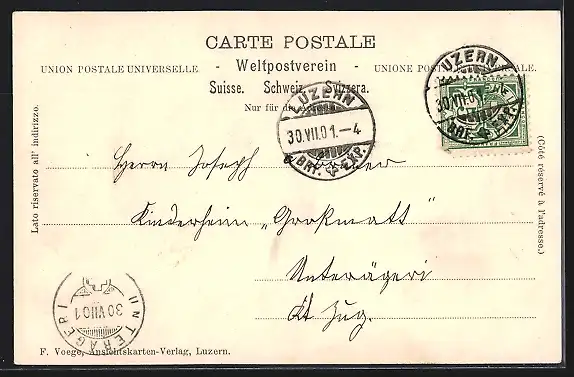 CARTE POSTALE
- Weltpostverein -
UNION POSTALE UNIVERSELLE. UNIONE POSTALE UNIVERSALE.
Suisse. Schweiz. Svizzera.
Nur für die Adresse.
LUZERN
30.VII.01.-4
BRF. EXP.
LUZERN
30.VII.01
BRF. EXP.
Herrn Joseph
Kinderheim „Großmatt"
Unterägeri
Kt Zug.
Lato riservato all' indirizzo.
(Côté réservé à l'adresse.)
UNTERÄGERI
30 VII 01
F. Voege, Ansichtskarten-Verlag, Luzern.